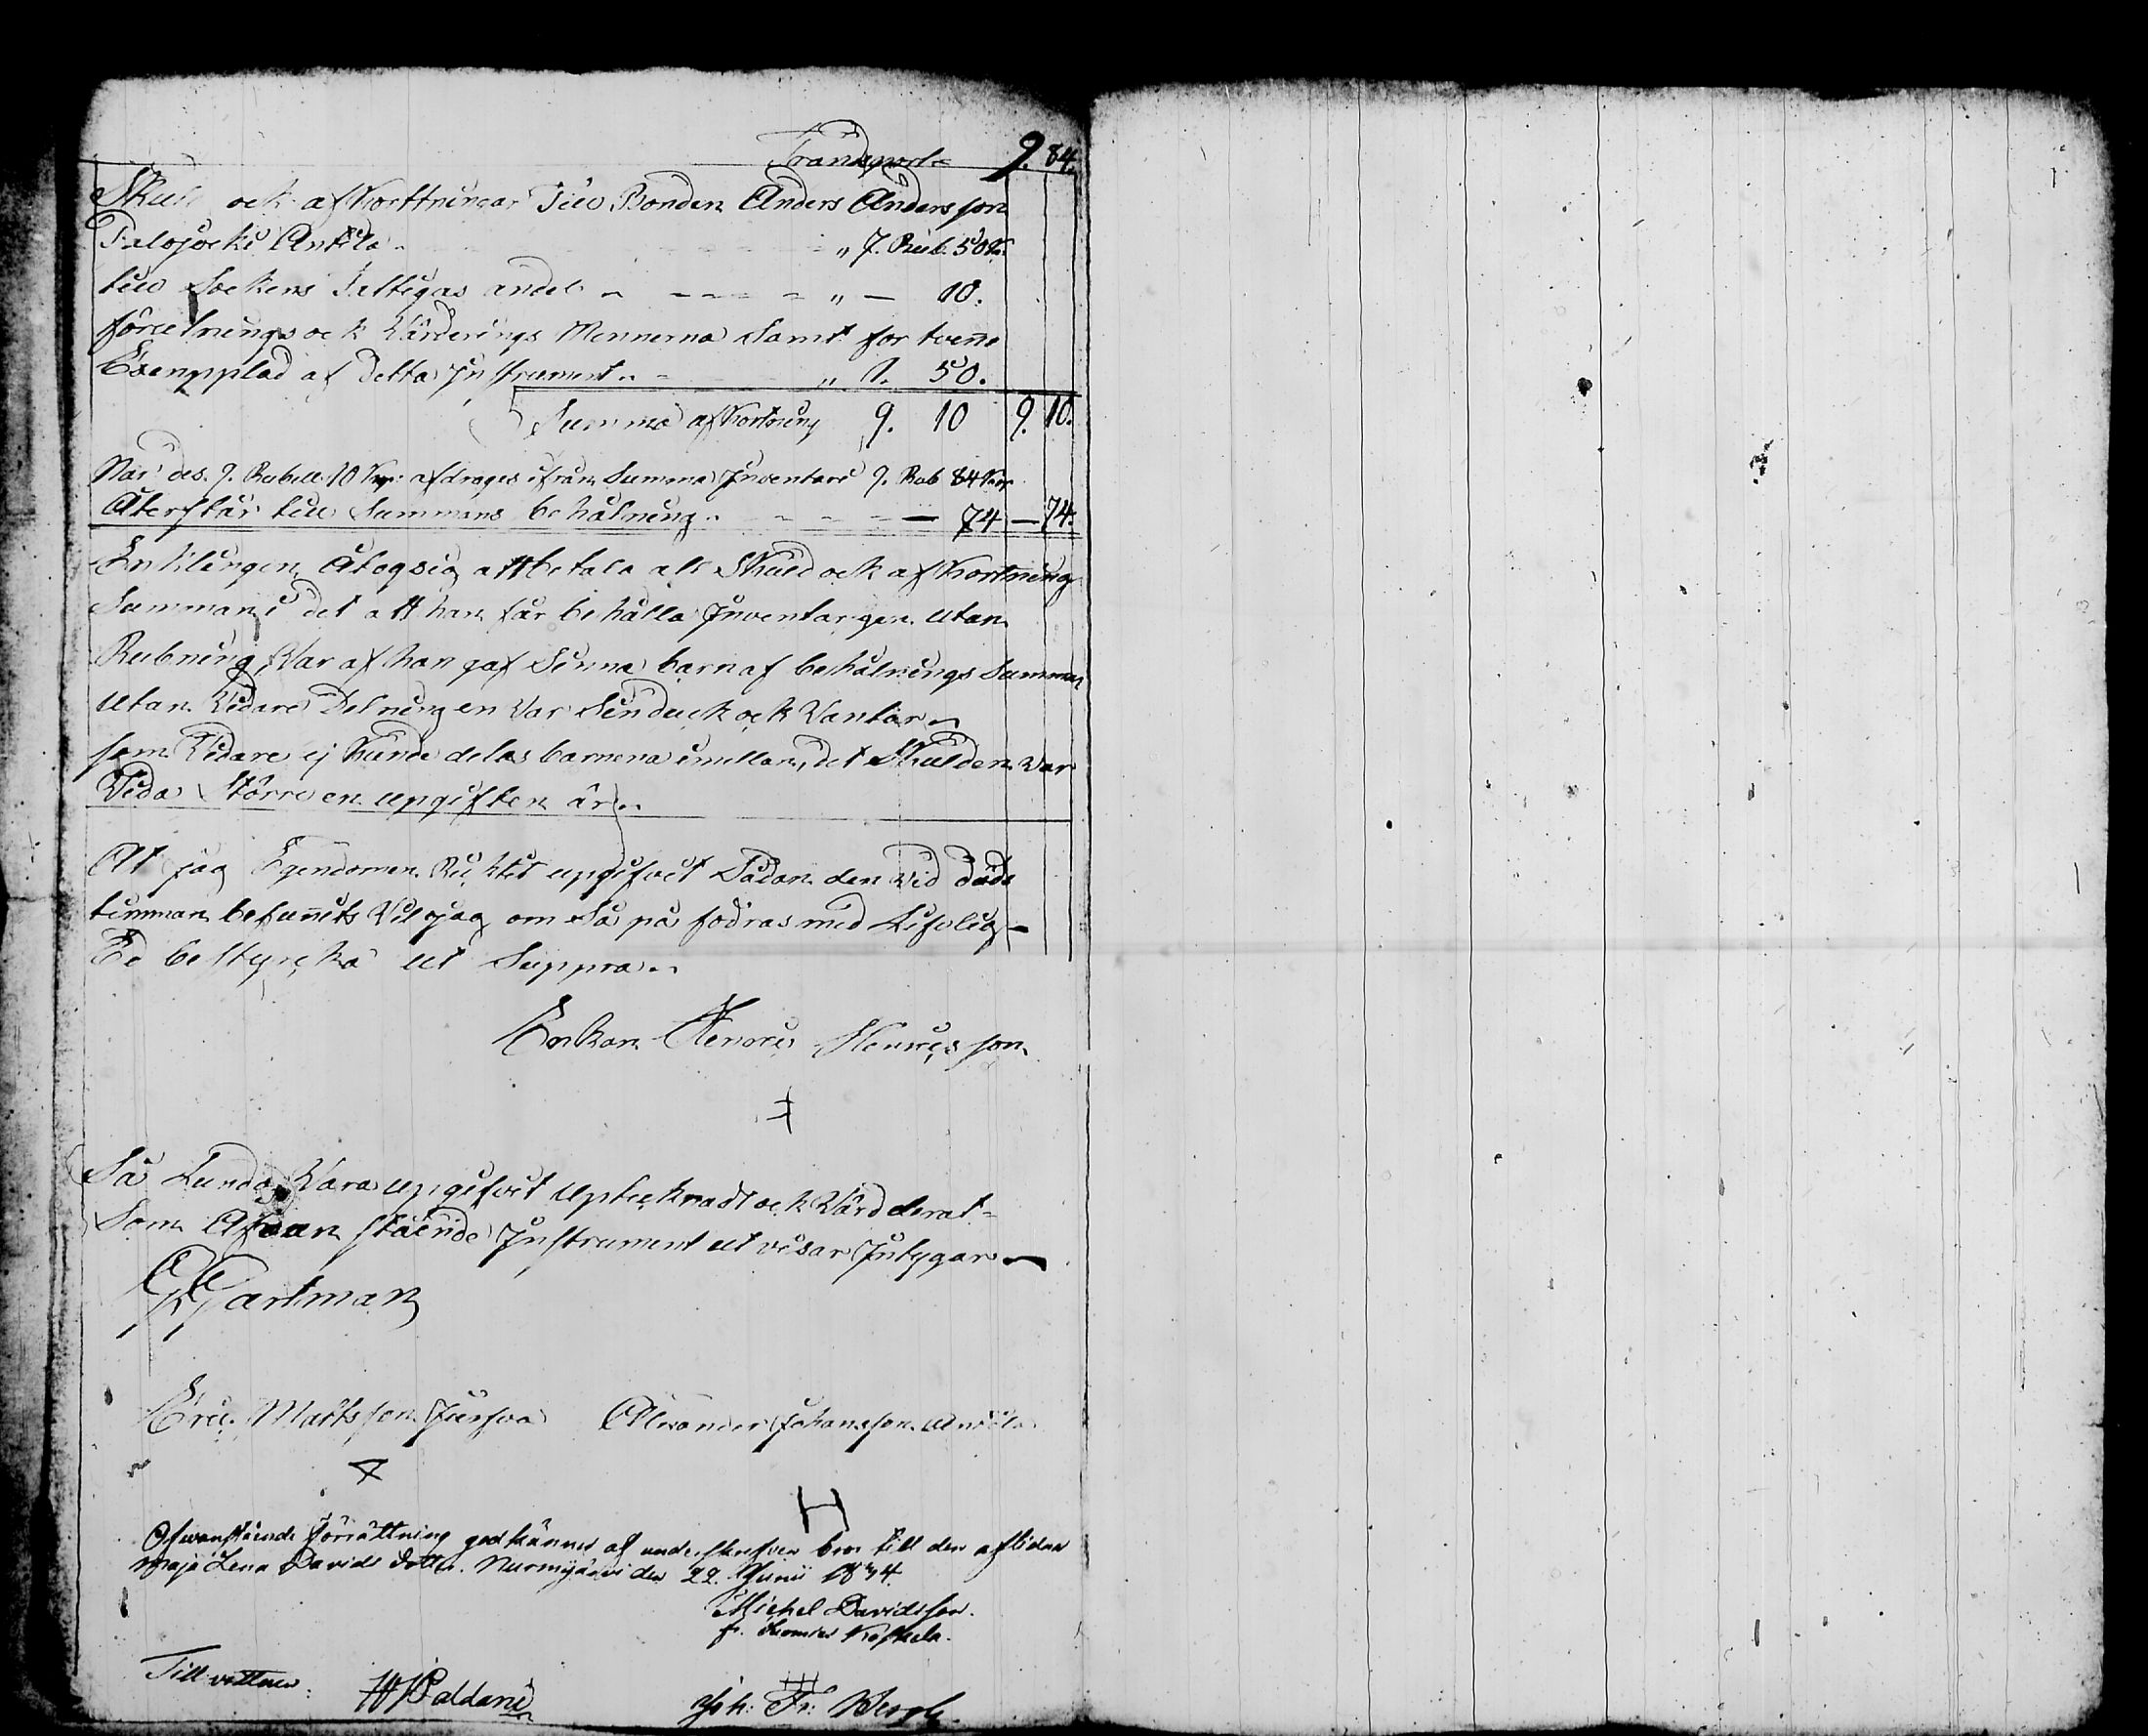 Transport 9. 84.
Skuld ock afkorttningar Till Bonden Anders Andersson
Palojocki Antila " 7. Rub. 50 K.
till Sockens Fattigas andel " — 10.
företnings ock Värderings Mennerna samt for tvenne
Exempplad af Detta Instrument " 1. 50.
Summa afkortning 9. 10 9. 10.
När des. 9. Rubell. 10 Kop: afdrages ifrån Summa Inventarie 9. Rub 84 Kop
Återstår till Summans behålning — 74 — 74.
Enklingen Åtog sig att betala all Skuld ock afkortning
Summan i det att han får behålla Inventarien utan
Rubning, Var af han gaf Sinna barn af behålnings Summan
utan Vidare Delning en Var Sin duck ock Vantar
som Vidare ej kunde delas barnena imellan, det Skulden Var
Vida Större en upgiften är
At jag Egendomen Ricktit upgifvet Sådan den Vid döds
timman befunnits Vil jag om Så på fodras med Lifvlig
Ed bestyrcka ut Suppra
Enkan Henric Henricsson
Så Lunda Vara upgifvet upteknadt ock Värdderat
Som Åfvan stående Instrument ut visar Intygar
Hartman
Eric Mattsson Alexander Johansson
H
Ofwanstående förrättning godkännes af underskrifven bror till den aflidna
Maja Lena Davids dotter. Nurmijärvi den 22. Junii 1834.
Michel Davidsson.
fr. Koskela.
Till vittnen:
Paldani Joh: Fr: Bergh.